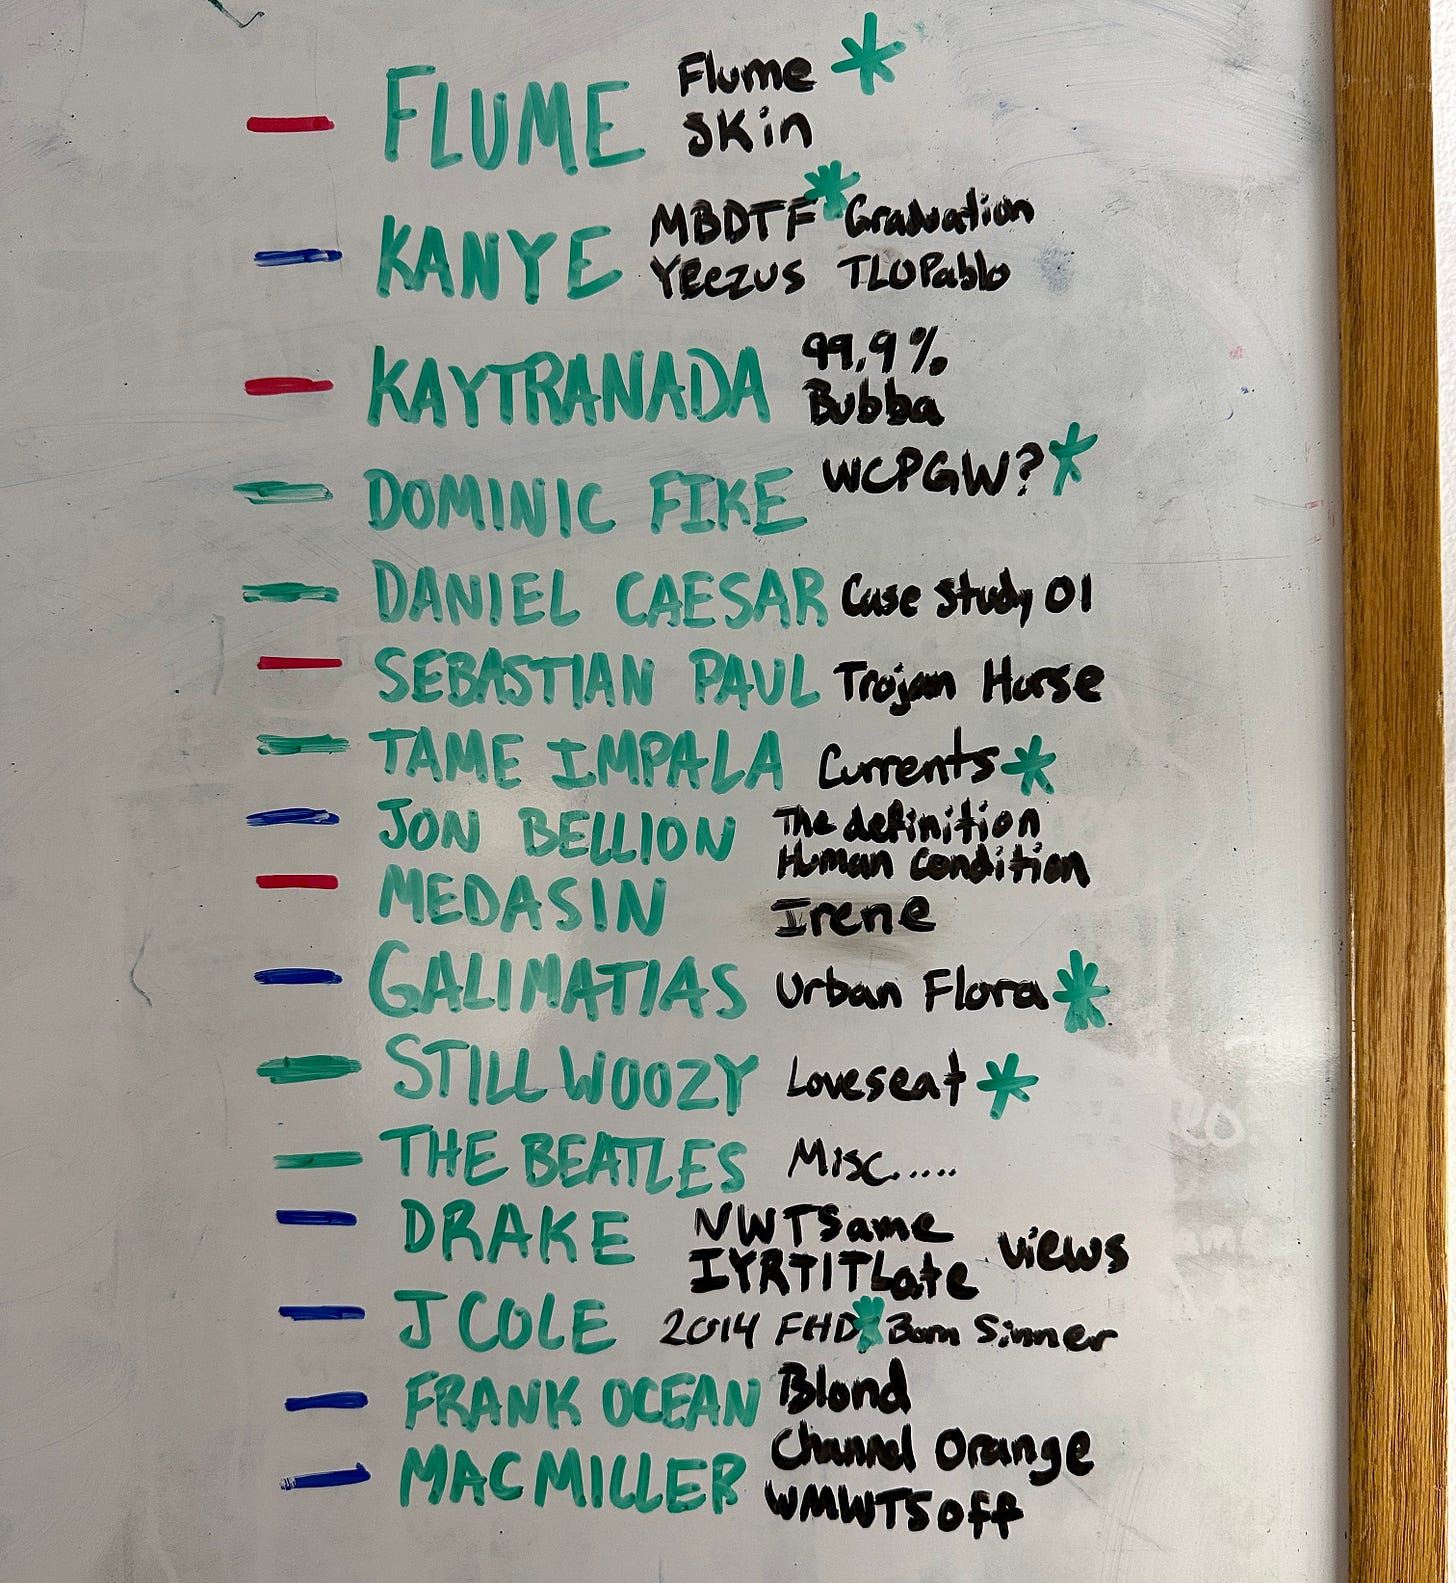 FLUME Flume *
Skin
KANYE MBDTF * Graduation
Yeezus TLOPablo
KAYTRANADA 99.9%
Bubba
DOMINIC FIKE WCPGW? *
DANIEL CAESAR Case Study 01
SEBASTIAN PAUL Trojan Horse
TAME IMPALA Currents *
JON BELLION The definition
Human Condition
MEDASIN Irene
GALIMATIAS Urban Flora *
STILL WOOZY Loveseat *
THE BEATLES Misc.....
DRAKE NWTSame Views
IYRTITLate
J COLE 2014 FHD * Born Sinner
FRANK OCEAN Blond
Channel Orange
MAC MILLER WMWTSoff